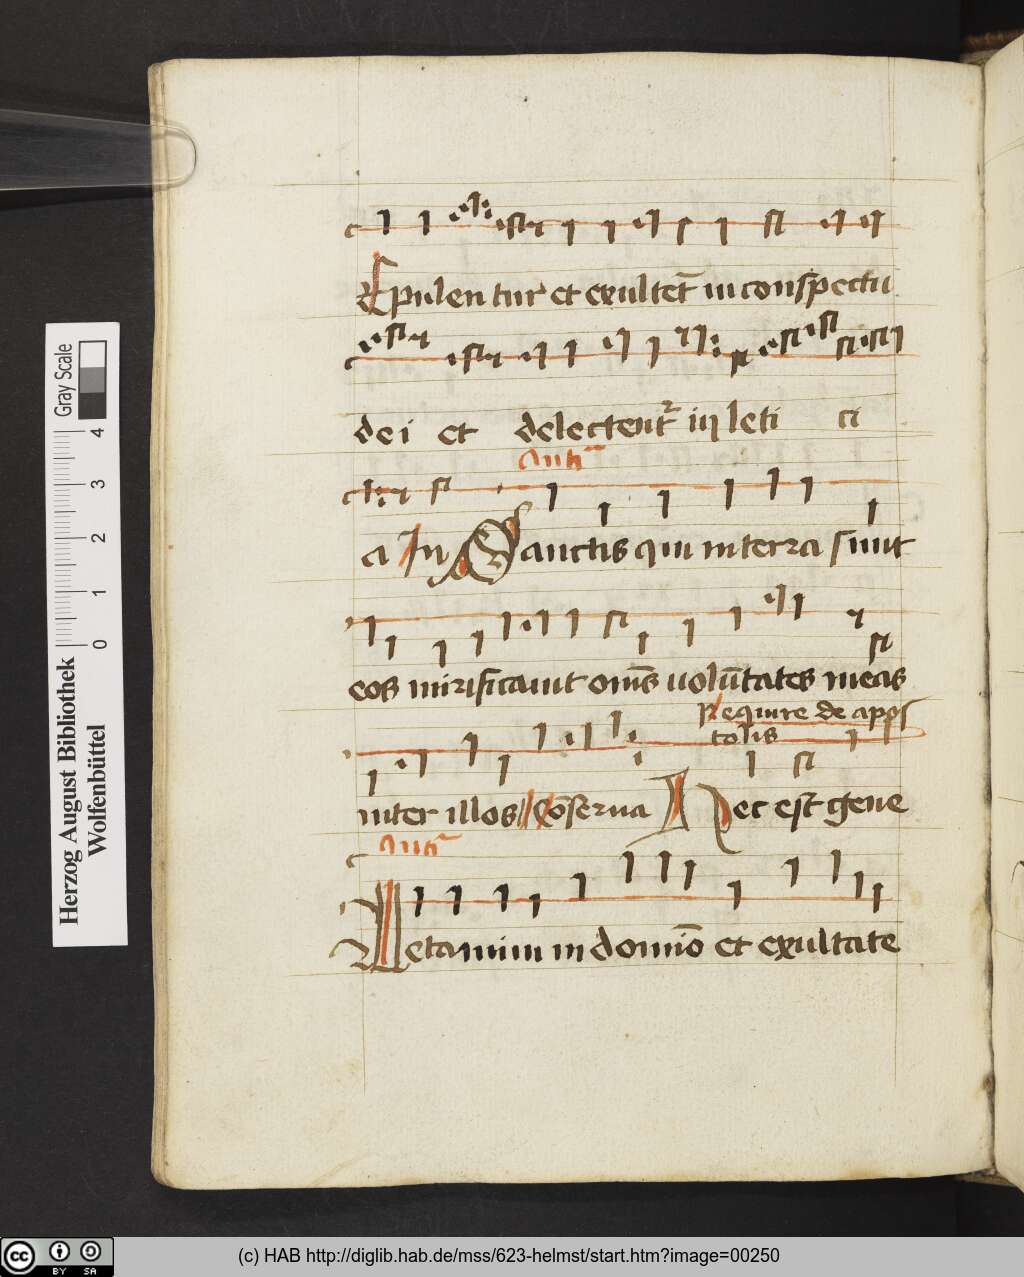 Epulentur et exultet̄ in conspectu
dei et delectent in leti ci
Anti
a In Sanctis qui in terra sunt
eos mirificauit om̄s uolūtates meas
Require de apos
tolis
inter illos Cōserua Hec est gene
Anti
Letamini in domi̅o et exultate
Gray Scale
0 1 2 3 4
Herzog August Bibliothek
Wolfenbüttel
cc BY SA
(c) HAB http://diglib.hab.de/mss/623-helmst/start.htm?image=00250